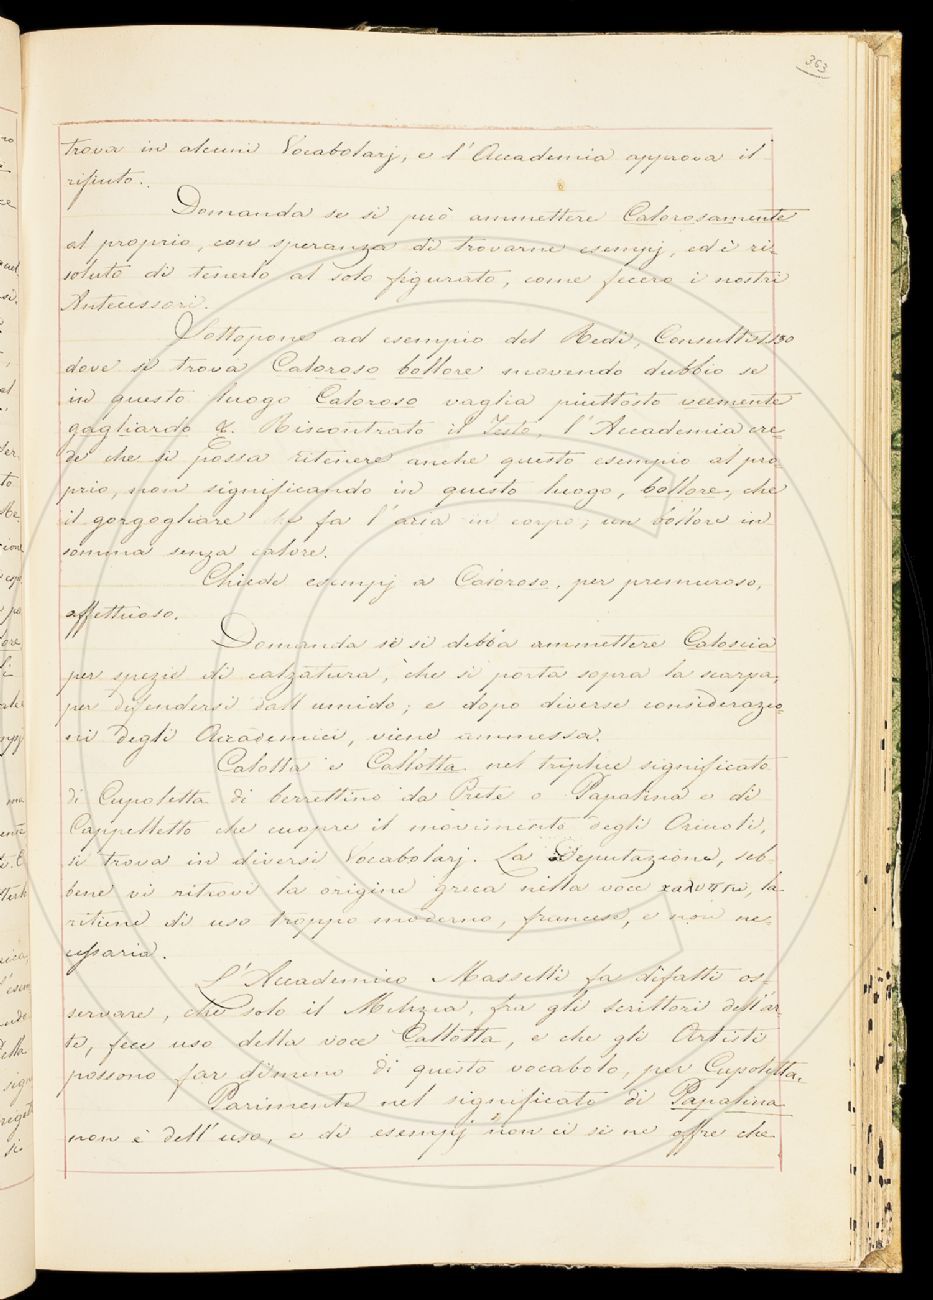 363
trova in alcuni Vocabolarj, e l'Accademia approva il
rifiuto.
Domanda se si può ammettere Calorosamente
al proprio, con speranza di trovarne esempj, ed è ri-
soluto di tenerlo al solo figurato, come fecero i nostri
Antecessori.
Sottopone ad esempio del Redi, Consulti 1.130
dove si trova Caloroso bollore movendo dubbio se
in questo luogo Caloroso vaglia piuttosto veemente
gagliardo &. Riscontrato il Testo, l'Accademia cre-
de che si possa ritenere anche questo esempio al pro-
prio, non significando in questo luogo, bollore, che
il gorgogliare che fa l'aria in corpo; un bollore in
somma senza calore.
Chiede esempj a Caloroso, per premuroso,
affettuoso.
Domanda se si debba ammettere Caloscia
per spezie di calzatura, che si porta sopra la scarpa,
per difendersi dall'umido; e dopo diverse considerazio-
ni degli Accademici, viene ammessa.
Calotta e Callotta nel triplice significato
di Cupoletta di berrettino da Prete o Papalina e di
Cappelletto che cuopre il movimento degli Oriuoli,
si trova in diversi Vocabolarj. La Deputazione, seb-
bene vi ritrovi la origine greca nella voce , la
ritiene di uso troppo moderno, francese, e non ne-
cessaria.
L'Accademico Masselli fa difatti os-
servare, che solo il Milizia, fra gli scrittori dell'ar-
te, fece uso della voce Callotta, e che gli Artisti
possono far dimeno di questo vocabolo, per Cupoletta.
Parimente nel significato di Papalina
non è dell'uso, e di esempj non ci se ne offre che